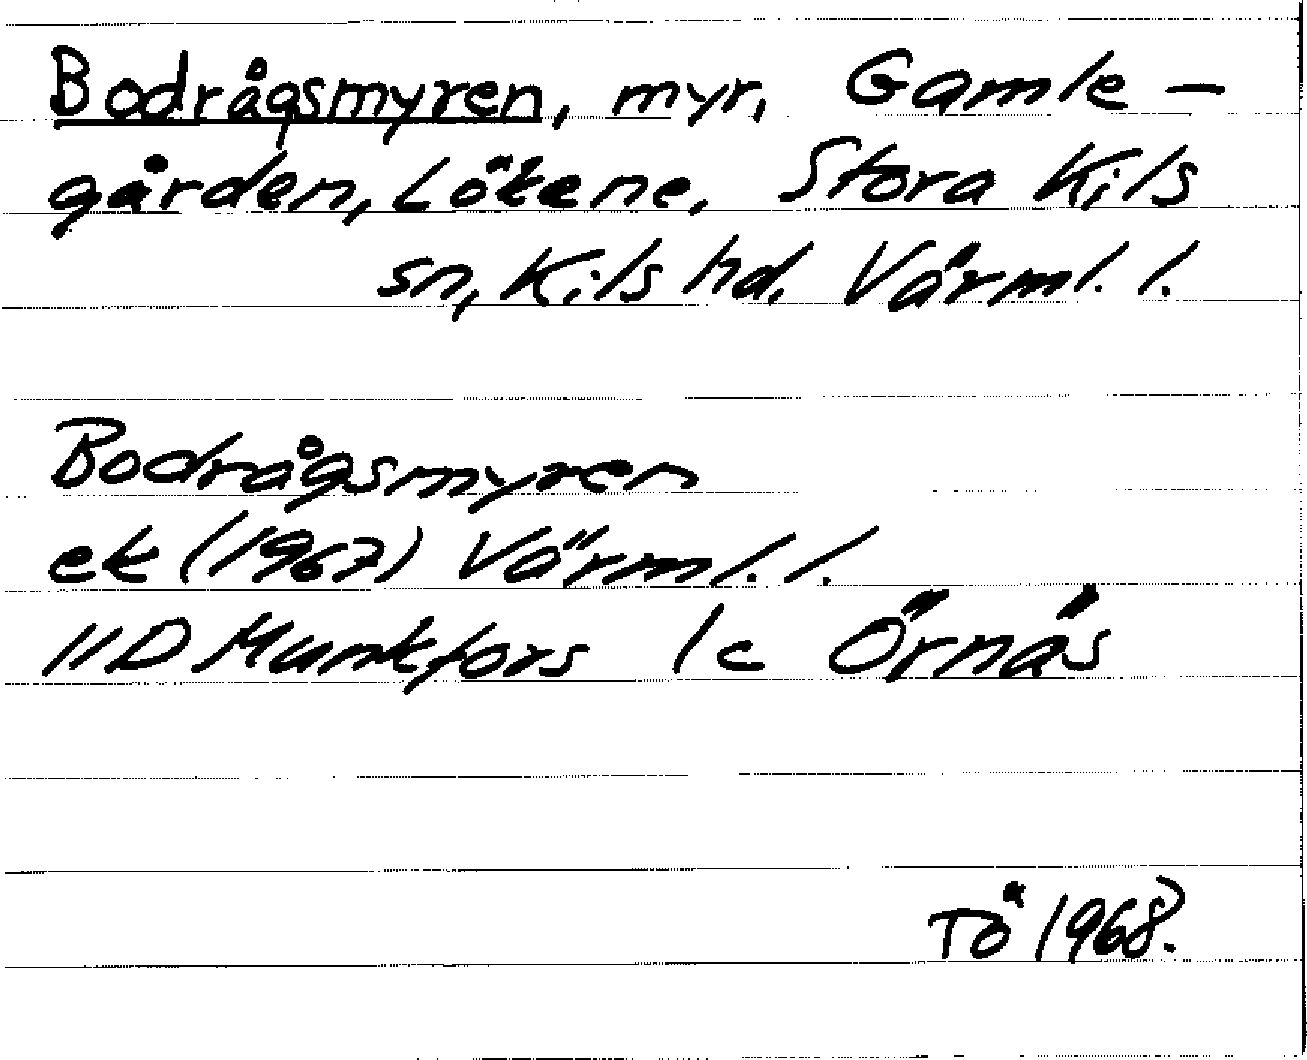 Bodrågsmyren, myr, Gamle-
gården, Lökene, Stora Kils
sn, Kils hd. Värml. l.
Bodrågsmyren
ek (1967) Värml. l.
11D Munkfors 1c Örnäs
TÖ 1968.